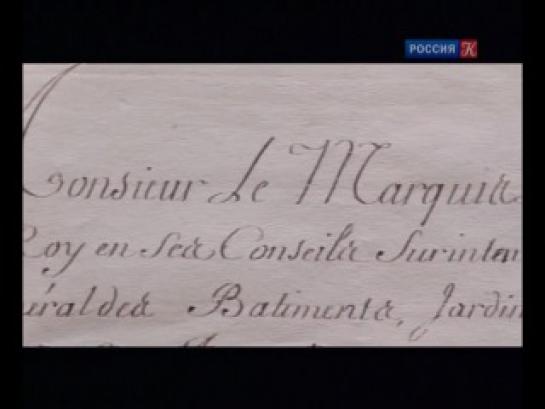 РОССИЯ К
Monsieur Le Marquis
Roy en Ses Conseils Surinten
néral des Batiments, Jardin